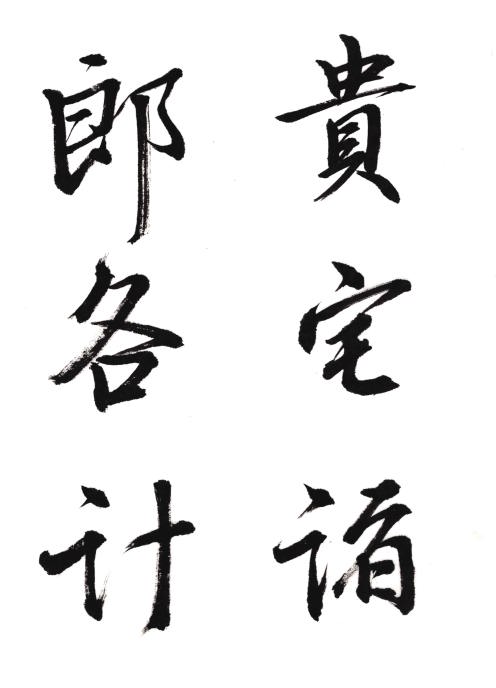 貴宅詢
郎各計